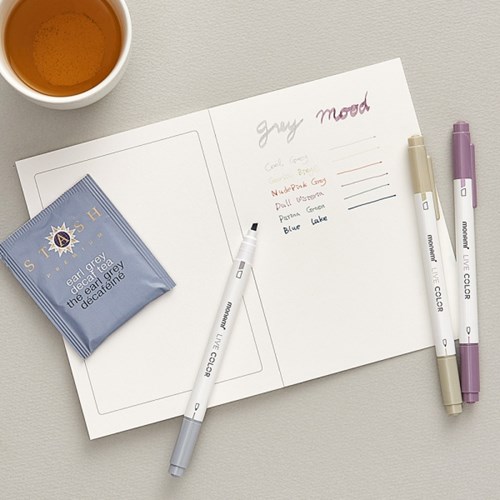 grey mood
Cool Grey
Nude Pink Grey
Dull Magenta
Prussian Green
Blue Lake
STASH
PREMIUM
earl grey
decaf tea
thé earl grey
décaféiné
monami LIVE COLOR
monami LIVE COLOR
monami LIVE COLOR